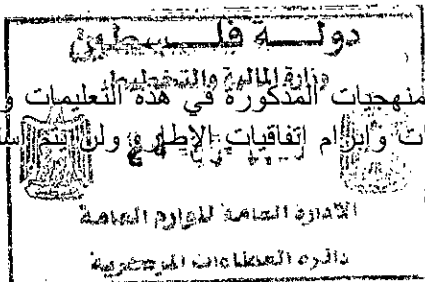 دولة فلسطين
وزارة المالية والتخطيط
منهجيات المذكورة في هذه التعليمات و
ات وإبرام إتفاقيات الإطار ولن يتم
الادارة العامة للوازم العامة
دائرة العطاءات المركزية